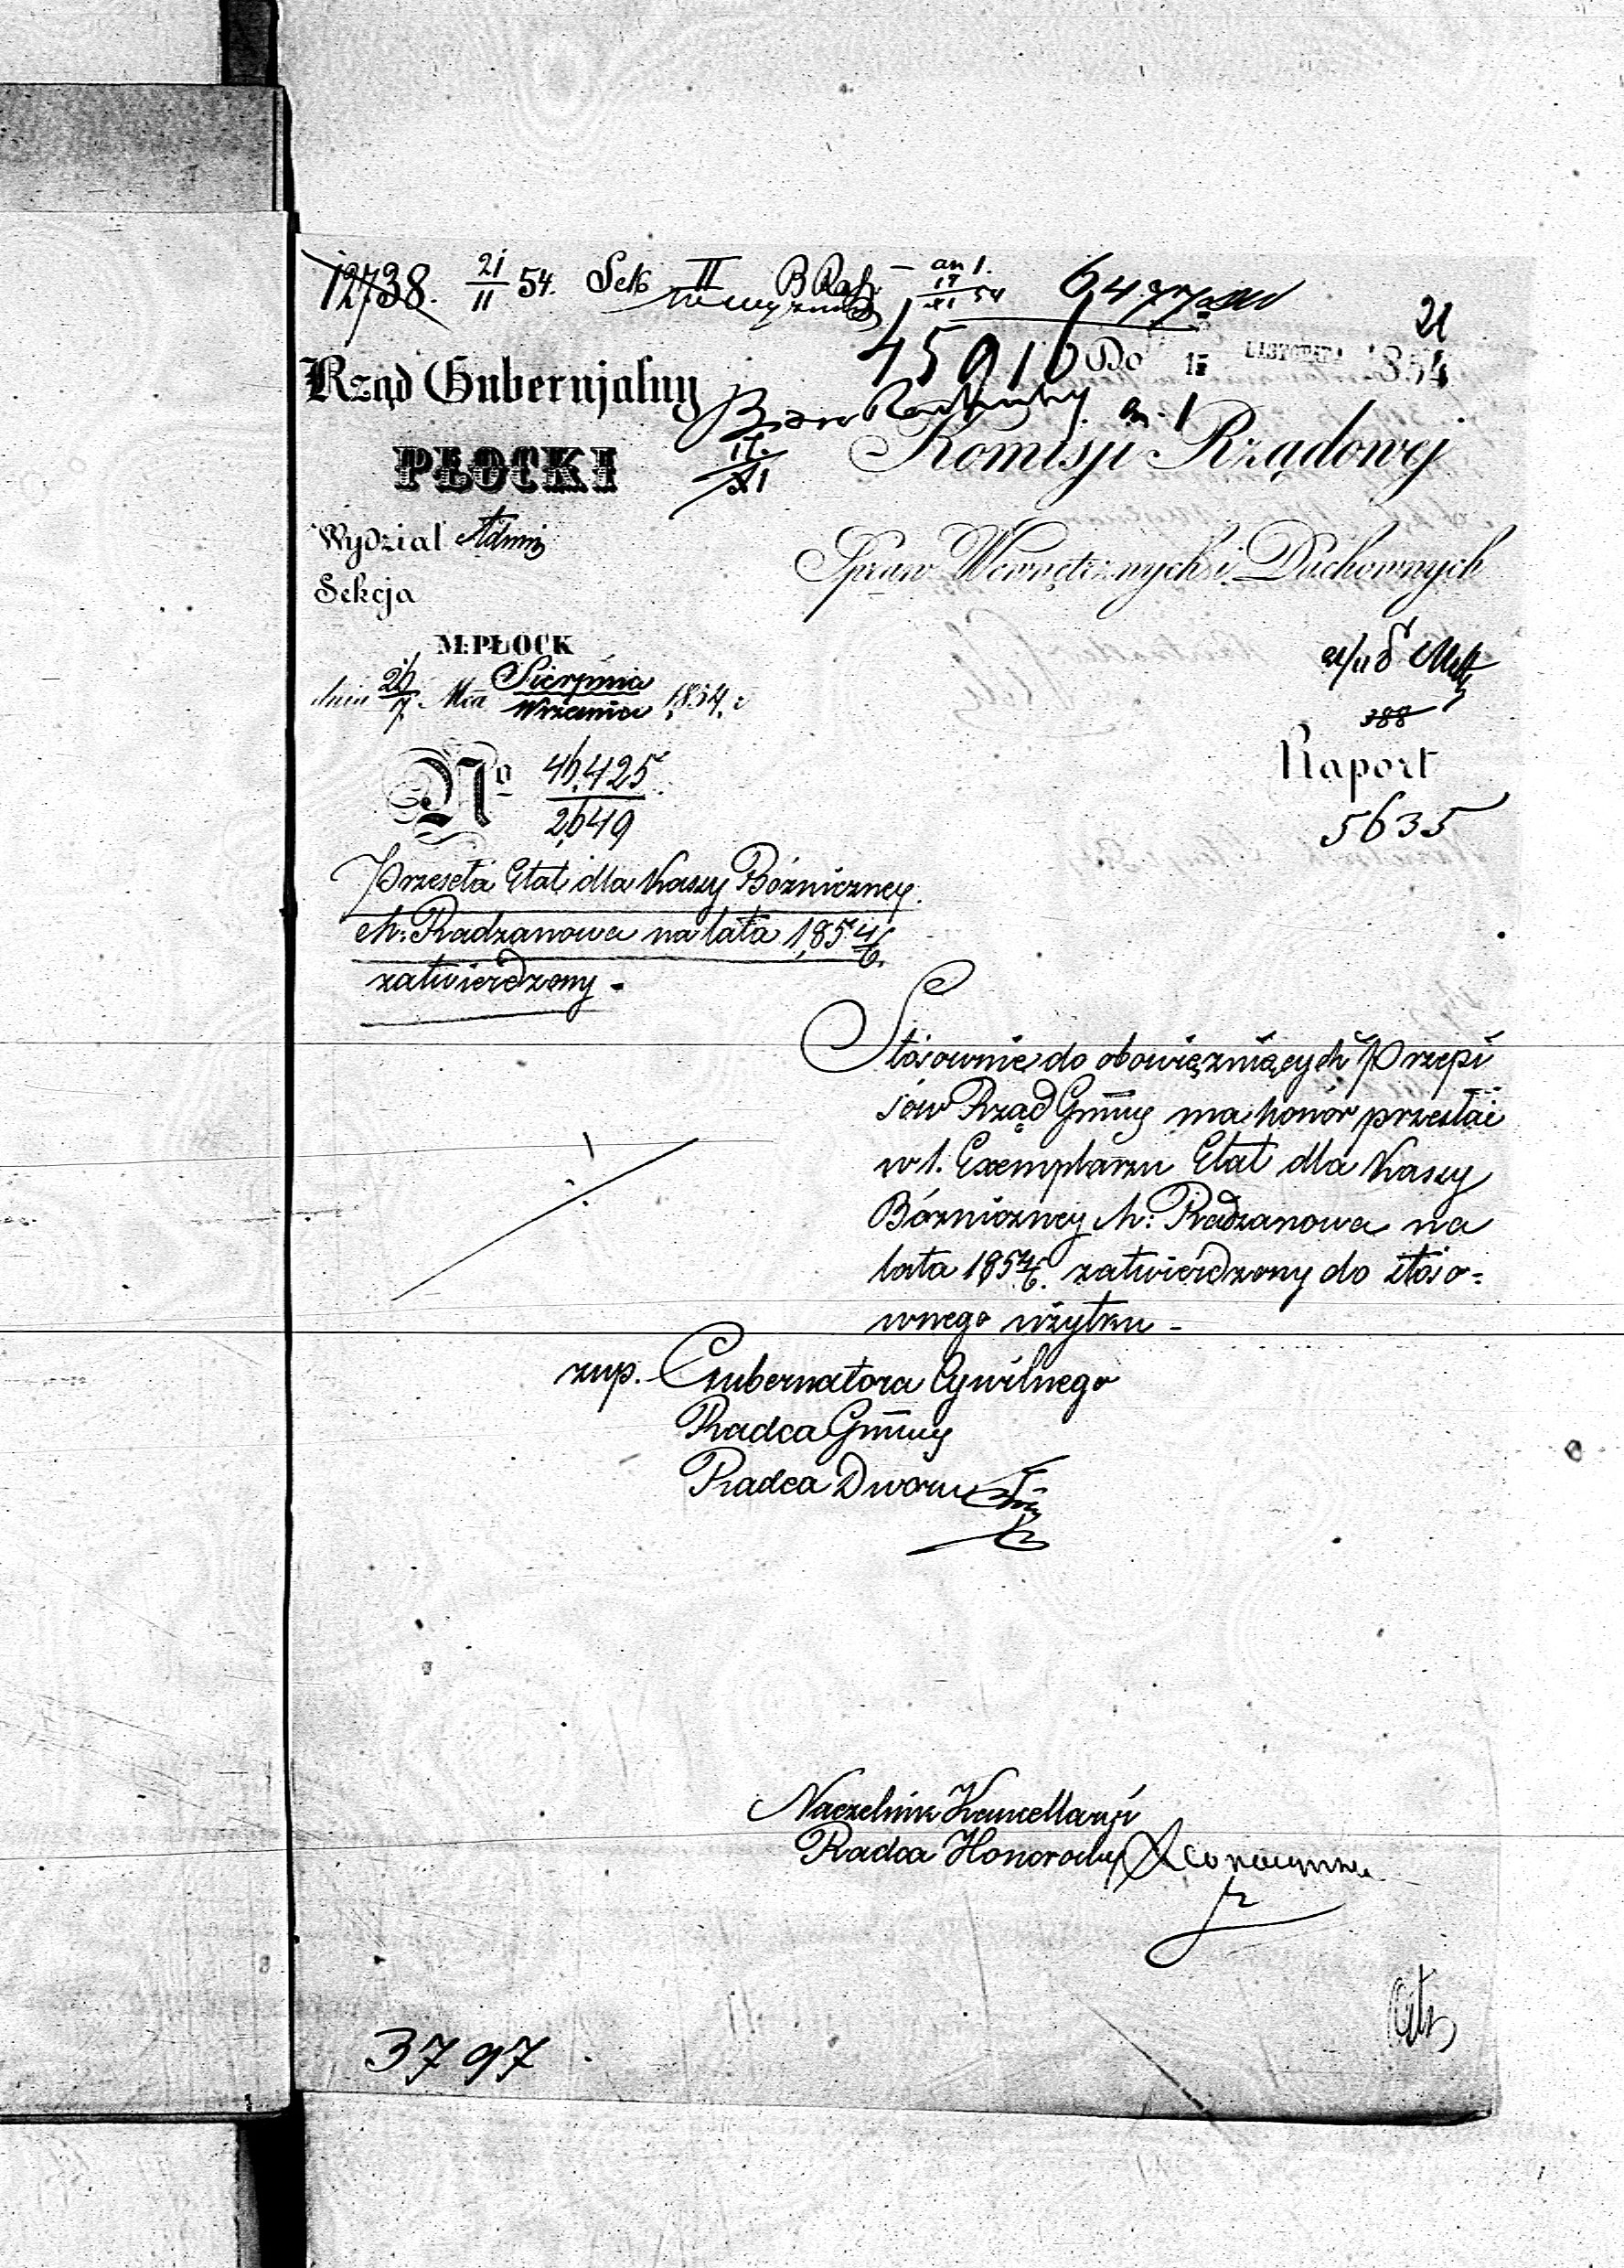 12738. 21/11 54. Sek II B Rach - an 1. 17/XI 54
45916 Do 15 LISTOPADA 1854 21
Rząd Gubernjalny
an. 1
PŁOCKI
17/XI
Komisji Rządowej
Wydział Admin
Spraw Wewnętrznych i Duchownych
Sekcja
M: PŁOCK
dnia 26/7 Mca Sierpnia/Września 1854 r
388
Raport
No 46,425/2649
5635
Przeseła Etat dla Kassy Bóżniczney
M: Radzanowa na lata 1854/6
zatwierdzony -
Stosownie do obowiązuiących Przepi
sów Rząd Gubny ma honor przesłać
w 1. Exemplarzu Etat dla Kassy
Bóżniczney M: Radzanowa na
lata 1854/6. zatwierdzony do stoso=
wnego użytku -
zup. Gubernatora Cywilnego
Radca Gubny
Radca Dworu
Naczelnik Kancellaryi
Radca Honorowy
3797